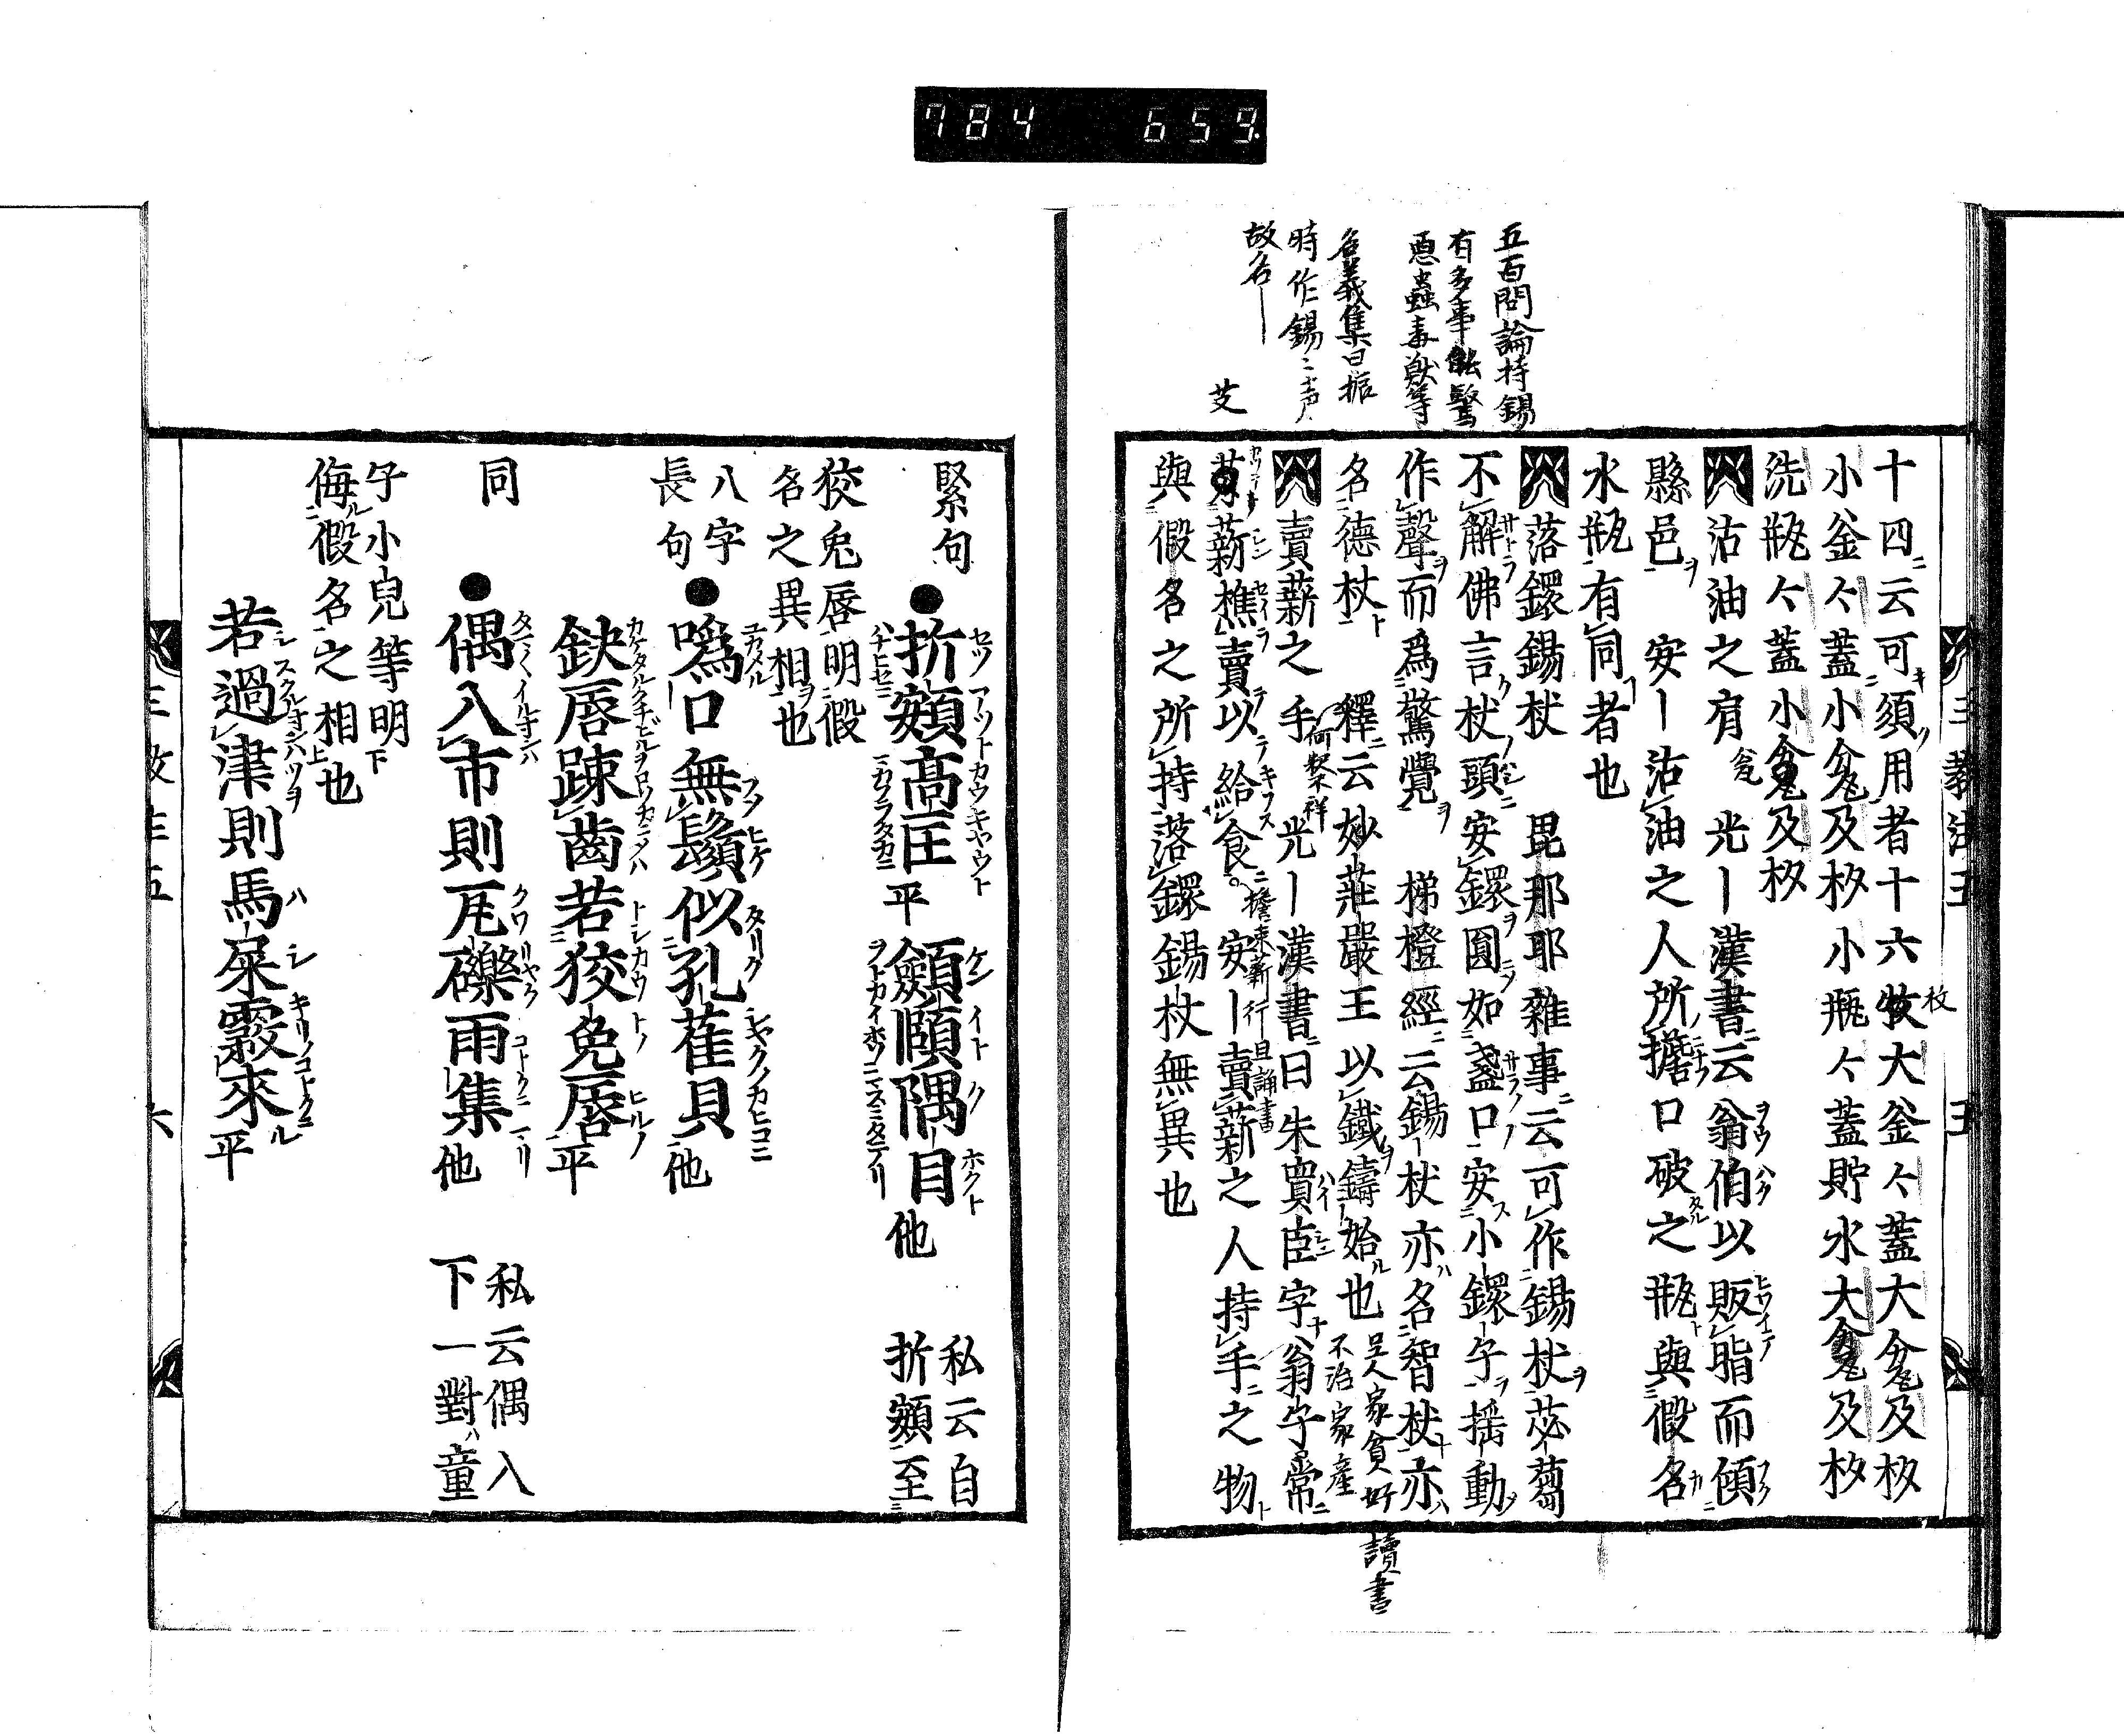 784 659
五百問論持錫
有多事能驚
悪蟲毒獣等
名義集曰振
時作錫〻声
故名｜
芟
十四云可須用者十六牧大釜〻蓋大㼜及杦
枚
小釜〻蓋小㼜及杦小瓶〻蓋貯水大㼜及杦
洗瓶〻蓋小㼜及杦
沽油之肩 光｜漢書云翁伯以販脂而傾
縣邑 安｜沽油之人所擔口破之瓶與假名
水瓶有同者也
落鐶錫杖 毘那耶雜事云可作錫杖苾蒭
不解佛言杖頭安鐶圓如盞口安小鐶子揺動
作聲而爲驚覺 梯橙經云錫杖亦名智杖亦
名德杖 釋云妙莊嚴王以鐵鑄始也
呈人家貧好
不治家産
讀書
賣薪之手 光｜漢書曰朱買臣字翁子常
薪樵賣以給食。 安｜賣薪之人持手之物
擔束薪行且誦書
與假名之所持落鐶錫杖無異也
三教注五 五
緊句
●折頞高匡平 顩頤隅目他
私云自
折頞至
狡兎唇明假
名之異相也
八字
長句
●喎口無鬚似孔雀貝他
缺唇踈齒若狡兔唇平
同
●偶入市則瓦礫雨集他
私云偶入
下一對童
子小皃等明
侮假名之相也
若過津則馬屎霧來平
三教注五 六